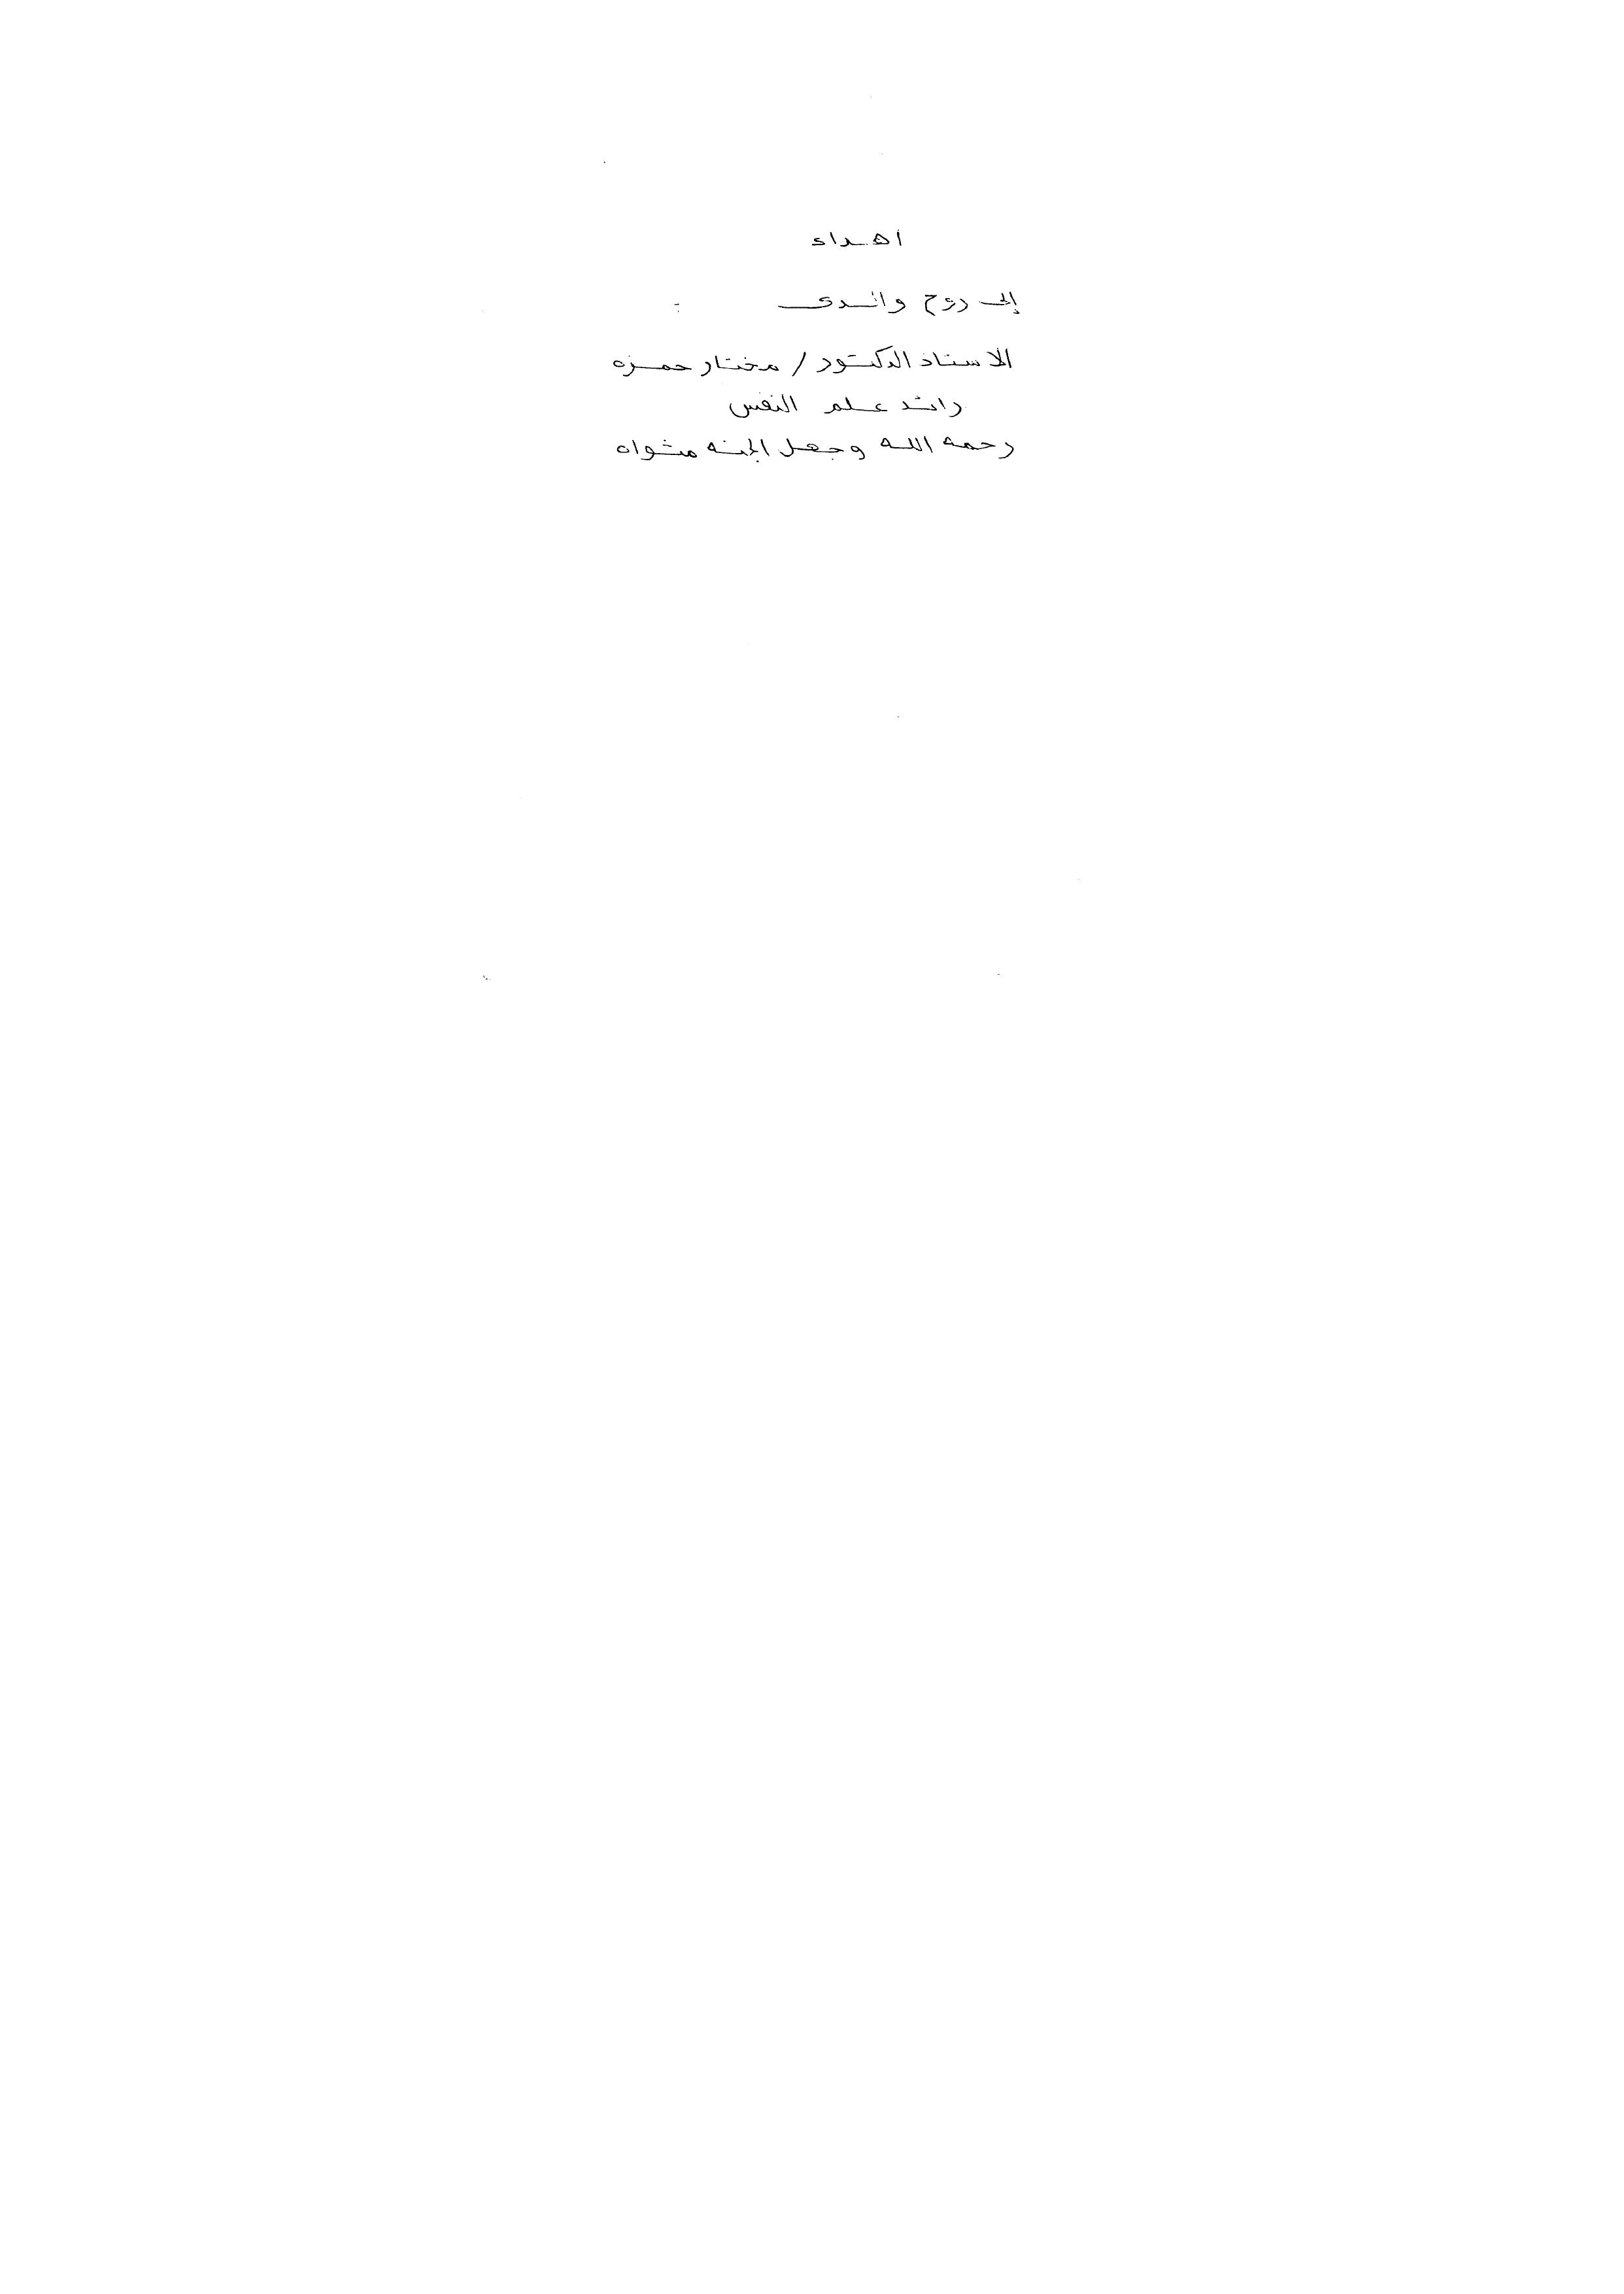 اهداء
إلى روح والدى
الاستاذ الدكتور / مختار حمزه
رائد علم النفس
رحمه الله وجعل الجنه مثواه